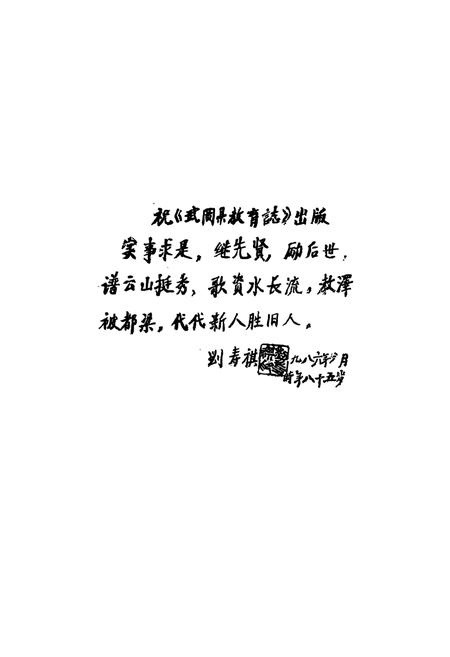 祝《武冈县教育誌》出版
实事求是，继先贤，励后世，
谱云山挺秀、歌资水长流，教泽
被都梁，代代新人胜旧人。
刘寿祺 一九八六年 月
时年八十五岁